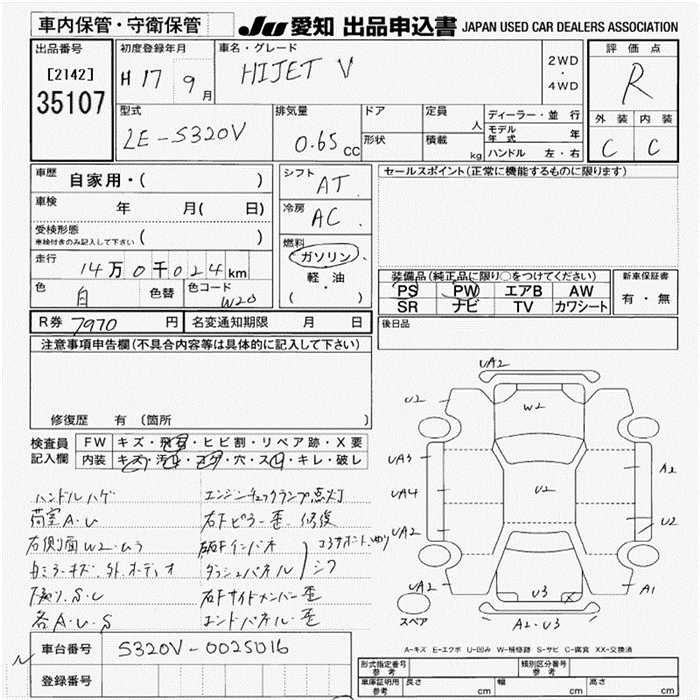 車内保管・守衛保管
JU 愛知 出品申込書 JAPAN USED CAR DEALERS ASSOCIATION
出品番号
[2142]
35107
初度登録年月
H 17 年 9 月
車名・グレード
HIJET V
2WD
・
4WD
評価点
R
外装 内装
C C
型式
LE-S320V
排気量
0.65 cc
ドア
形状
定員 人
積載 kg
ディーラー・並行
モデル年式 年
ハンドル 左・右
車歴 自家用・( )
車検 年 月( 日)
受検形態
車検付きのみ記入して下さい ( )
走行 14万0千024km
色 白 色替 色コード W20
シフト AT
冷房 AC
燃料
ガソリン
軽・油
( )
セールスポイント(正常に機能するものに限ります)
装備品(純正品に限り○をつけてください)
PS PW エアB AW
SR ナビ TV カワシート
新車保証書
有・無
R券 7970 円 名変通知期限 月 日
後日品
注意事項申告欄(不具合内容等は具体的に記入して下さい)
修復歴 有 (箇所
検査員記入欄
FW キズ・飛石・ヒビ割・リペア跡・X要
内装 キズ・汚れ・コゲ・穴・スレ・キレ・破レ
ハンドルハゲ エンジンチェックランプ点灯
荷室A.U 右下ピラー歪 修復
右側面W2.ムラ
ダッシュパネル
下廻り.S.C 右Fサイドメンバー歪
各A.U.S エンドパネル歪
UA2
W2
U2
U2
UA3
A2
UA4
U2
UA2
U2
UA2
U3
A1
A2-U3
スペア
A-キズ E-エクボ U-凹み W-補修跡 S-サビ C-腐食 XX-交換済
車台番号 S320V-0025016
登録番号
形式指定番号 参考
類別区分番号 参考
車庫証明用 参考 長さ cm 幅 cm 高さ cm